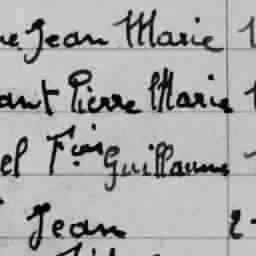 Jean Marie
ant Pierre Marie
el Fçois Guillaume
Jean 2